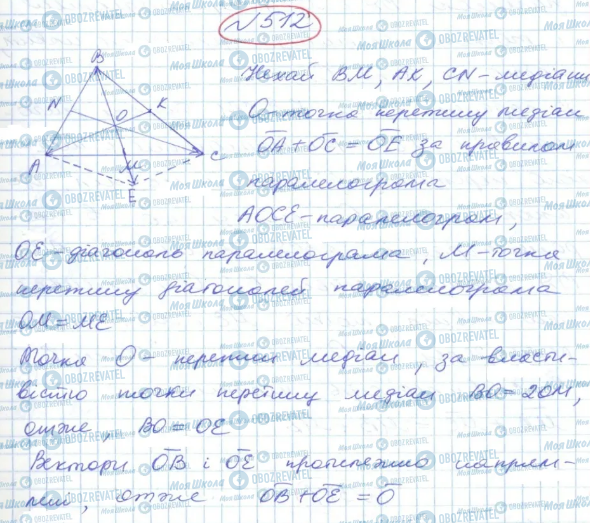 №512
B
N
O
K
A
M
C
E
Нехай BM, AK, CN - медіани
O - точка перетину медіан
OA + OC = OE за правилом
паралелограма
AOCE - паралелограм,
OE - діагональ паралелограма, M - точка
перетину діагоналей паралелограма
OM = ME
Точка O - перетин медіан, за власти-
вістю точки перетину медіан BO = 2OM,
отже, BO = OE
Вектори OB і OE протилежно напрям-
лені, отже OB + OE = O
Моя Школа
OBOZREVATEL